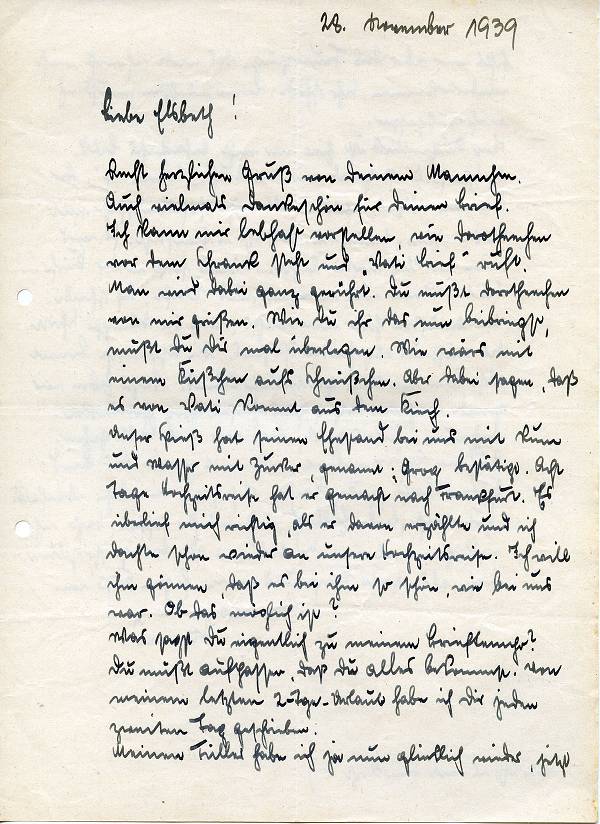 28. November 1939
Liebe Elsbeth!
Recht herzlichen Gruß von Deinem Mannchen.
Auch vielmals Dankeschön für Deinen Brief.
Ich kann mir lebhaft vorstellen, wie Dorotheechen
vor dem Schrank steht und „Vati lieb“ ruft.
Man wird dabei ganz gerührt. Du mußt Dorotheechen
von mir grüßen. Wie Du ihr das nun beibringst,
mußt Du Dir mal überlegen. Wie wärs mit
einem Küßchen aufs Schnüßchen. Aber dabei sagen, daß
es von Vati kommt aus dem
Unser Spieß hat seinen Ehestand bei uns mit Rum
und Wasser mit Zucker, genannt: Grog bestätigt. Acht
Tage Hochzeitsreise hat er gemacht nach Frankfurt. Es
überlief mich richtig, als er davon erzählte und ich
dachte schon wieder an unsere Hochzeitsreise. Ich will
ihm gönnen, daß es bei ihm so schön, wie bei uns
war. Ob das möglich ist?
Was sagst Du eigentlich zu meinem
Du mußt aufpassen, daß Du alles bekommst. Von
meinem letzten 2-Tge-Urlaub habe ich Dir jeden
zweiten Tag geschrieben.
Meinen Füller habe ich ja nun glücklich wieder, jetzt